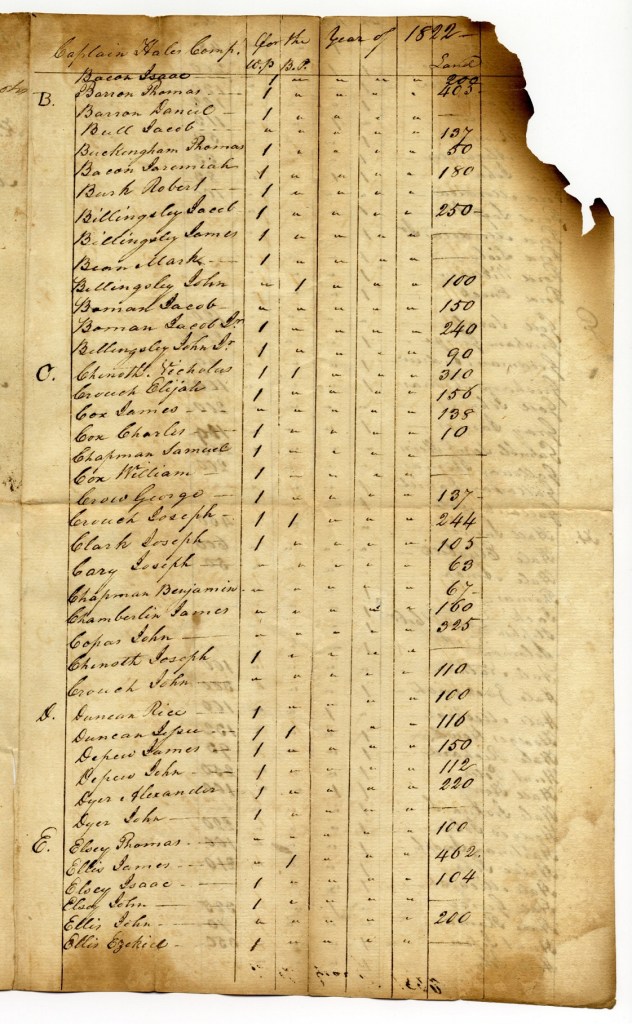 Captain Hales Comp. for the Year of 1822
W.P B.P. Land
Bacon Isaac 1 " " " " 200
B. Barron Thomas 1 " " " " 403
Barron Daniel 1 " " " " —
Bull Jacob " " " " " 137
Buckingham Thomas 1 " " " " 50
Bacon Jeremiah 1 " " " " 180
Burk Robert 1 " " " " —
Billingsly Jacob 1 " " " " 250
Billingsly James 1 " " " " —
Bean Mark 1 " " " " —
Billingsley John " 1 " " " 100
Boman Jacob " " " " " 150
Boman Jacob Jr 1 " " " " 240
Billingsley John Jr 1 " " " " 90
C. Chinoth Nicholas 1 1 " " " 310
Crouch Elijah 1 " " " " 156
Cox James " " " " " 138
Cox Charles 1 " " " " 10
Chapman Samuel 1 " " " " —
Cox William 1 " " " " —
Crow George 1 " " " " 137
Crouch Joseph 1 1 " " " 244
Clark Joseph 1 " " " " 105
Cary Joseph " " " " " 63
Chapman Benjamin " " " " " 67
Chamberlin James " " " " " 160
Copas John " " " " " 325
Chinoth Joseph 1 " " " " —
Crouch John " " " " " 110
D. Duncan Rice 1 " " " " 100
Duncan Jesse 1 1 " " " 116
Depew James 1 " " " " 150
Depew John 1 " " " " 112
Dyer Alexander 1 " " " " 220
Dyer John 1 " " " " —
E. Elsey Thomas " " " " " 100
Ellis James " 1 " " " 462
Elsey Isaac 1 " " " " 104
Elsey John 1 " " " " —
Ellis John " " " " " 200
Ellis Ezekiel 1 " " " " —